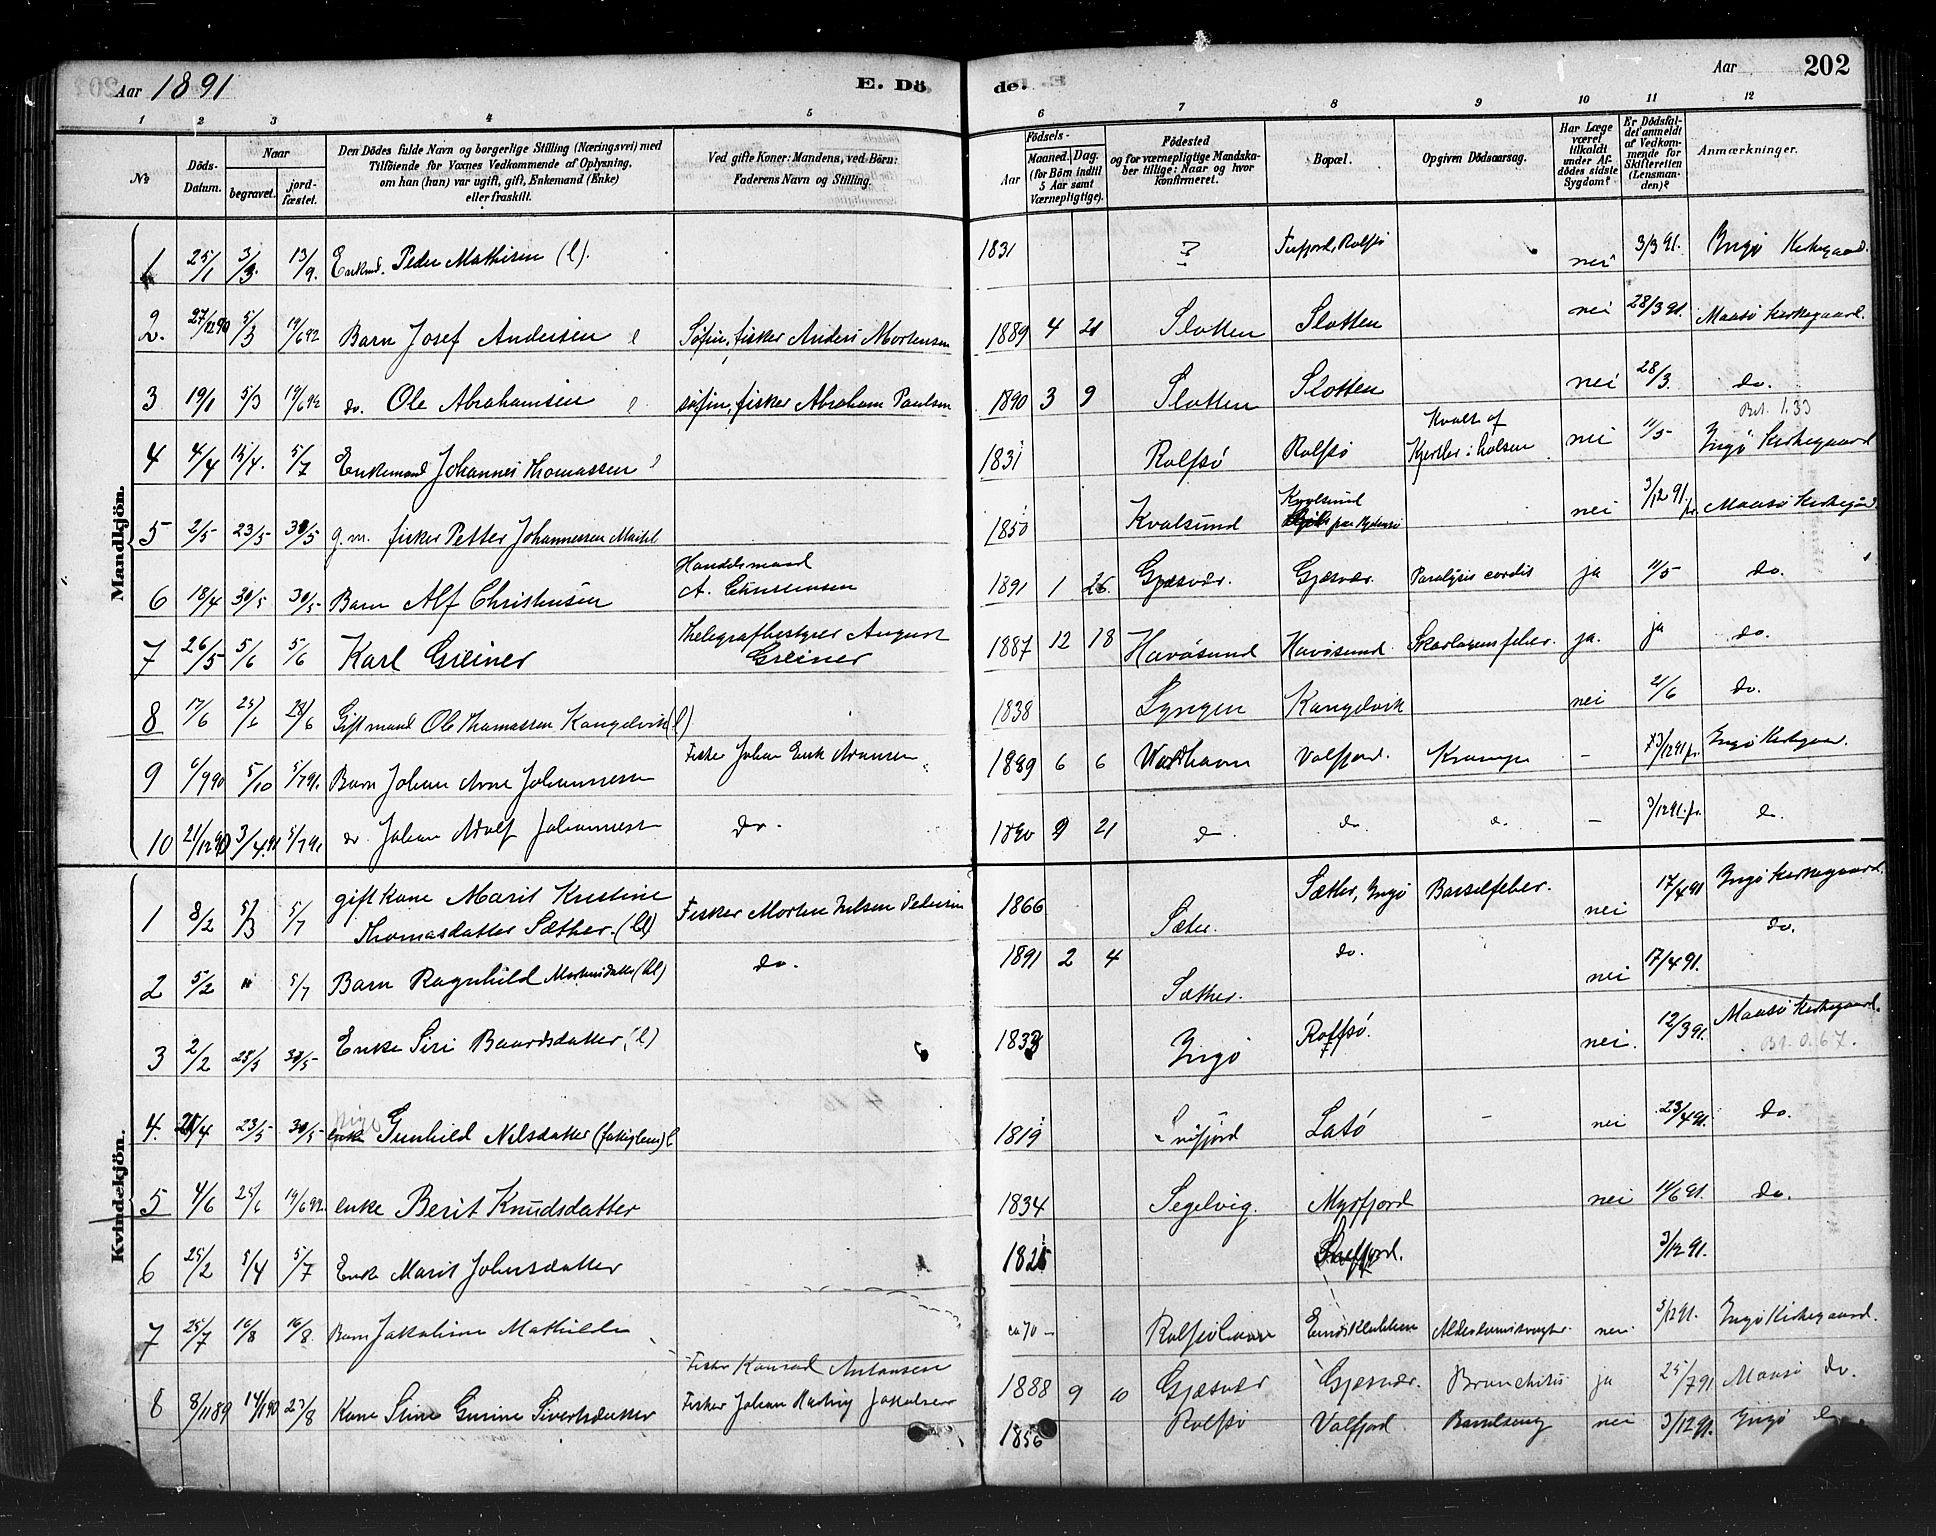 Aar 1891
E. Døde.
Aar
202
1 2 3 4 5 6 7 8 9 10 11 12
No
Døds-Datum.
Naar
begravet.
jordfæstet.
Den Dødes fulde Navn og borgerlige Stilling (Næringsvei) med
Tilføiende for Voxnes Vedkommende af Oplysning,
om han (hun) var ugift, gift, Enkemand (Enke)
eller fraskilt.
Ved gifte Koner: Mandens, ved Børn:
Faderens Navn og Stilling.
Fødsels-
Aar
Maaned. Dag.
(for Børn indtil
5 Aar samt
Værnepligtige).
Fødested
og for værnepligtige Mandska-
ber tillige: Naar og hvor
konfirmeret.
Bopæl.
Opgiven Dødsaarsag.
Har Læge
været
tilkaldt
under Af-
dødes sidste
Sygdom?
Er Dødsfal-
det anmeldt
af Vedkom-
mende for
Skifteretten
(Lensman-
den)?
Anmærkninger.
Mandkjön.
1 25/1 3/3. 13/9. Enkemd. Peder Mathisen (l). 1831 ? Rolfsø nei 3/3 91. Ingø Kirkegaard.
2. 27/12 90 5/3 19/6 92 Barn Josef Andersen l Søfin, fisker Anders Mortensen 1889 4 21 Slotten Slotten nei 28/3 91. Maasø Kirkegaard.
3 19/1 5/3 19/6 92 do. Ole Abrahamsen l søfin, fisker Abraham Paulsen 1890 3 9 Slotten Slotten nei 28/3. do.
Bet. 1.33
4 4/4 15/4. 5/7 Enkemand Johannes Thomassen l 1831 Rolfsø Rolfsø Kvalt af Kjertler i halsen nei 11/5 Ingø Kirkegaard
5 2/5 23/5 30/5 g.m. fisker Petter Johannessen 1850 Kvalsund Kvalsund nei 3/12 91. Maasø Kirkegård
6 18/4 30/5 30/5 Barn Alf Christensen Handelsmand A. Christensen 1891 1 26. Gjesvær. Gjesvær. Paralysis cordis ja 11/5 do.
7 26/5 5/6 5/6 Karl Greiner Telegrafbestyrer August Greiner 1887 12 18 Havøsund Havøsund Skarlagensfeber. ja. ja do.
8 17/6 25/6 28/6 Gift mand Ole Thomassen Kangelvik (l) 1838 Lyngen Kangelvik nei 21/6 do.
9 6/9 90 5/10 5/7 91. Barn Johan Arne Johannessen Fisker Johan Erik 1889 6 6 Valfjord. Krampe - 3/12 91 Ingø Kirkegaar.
10 21/12 90 3/4 91 5/7 91 do Johan Adolf Johannessen do. 1890 9 21 do do do - 3/12 91. do.
Kvindekjön.
1 8/2 5/3 5/7 gift kone Marit Kristine Thomasdatter Sæther. (l) Fisker Morten Nilsen Pedersen 1866 Sæter. Sæther, Ingø Barselfeber. nei 17/4 91 Ingø Kirkegaard.
2 5/2 " 5/7 Barn Ragnhild Mortensdatter (l) do. 1891 2 4 Sæther. do. nei 17/4 91. do.
3 2/2 28/5 30/5 Enke Siri Baardsdatter (l) 1833 Ingø Rolfsø. nei. 12/3 91. Maasø Kirkegaard.
Bt. 0.67.
4. 21/4 23/5 30/5 Pige Gunhild Nilsdatter (fattiglem) l 1819 Snefjord Latø - nei 23/4 91. do.
5 4/6 25/6 19/6 92. Enke Berit Knudsdatter 1834 Segelvig. Myrfjord nei 11/6 91. do.
6 25/2 5/4 5/7 Enke Marit Johnsdatter 1825 Snefjord. 3/12 91.
7 25/7 16/8 16/8. Barn Jakobine Mathilde Fisker Konrad Antonsen ca 70 - Rolfsøhavn nei 3/12 91. Ingø Kirkegaard.
8 8/11 89 14/1 90 23/8 Kone Stine Gurine Sivertsdatter Fisker Johan Hartvig Jakobsen 1888 9 10 Gjæsvær Gjesvær. Bronchitis ja 25/7 91 Maasø do
1856 Rolfsø Valfjord Barselseng nei 3/12 91. Ingø do